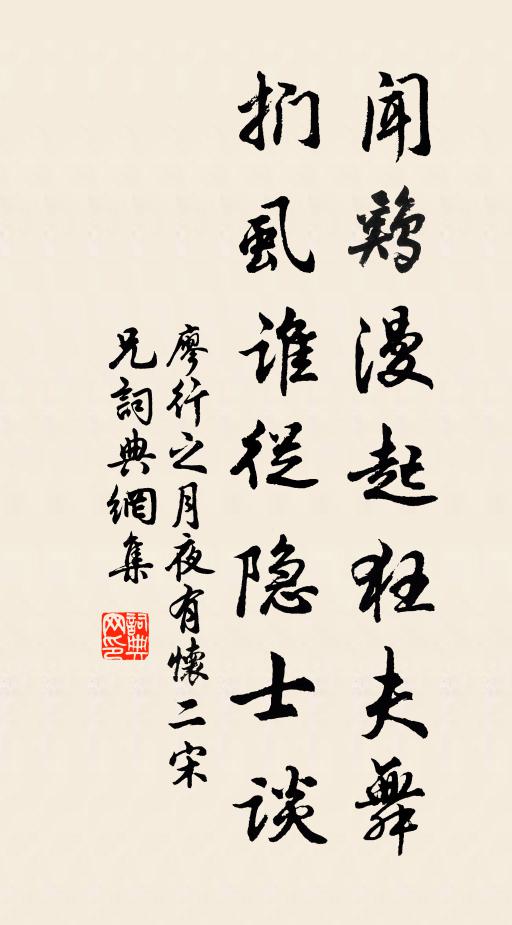 闻鸡漫起狂夫舞
扪虱谁从隐士谈
廖行之月夜有懷二宋
兄詞典網集
詞典
网印